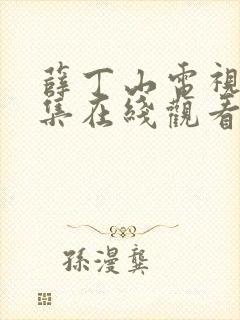 薛丁山電視
集在綫觀看
孫漫龔